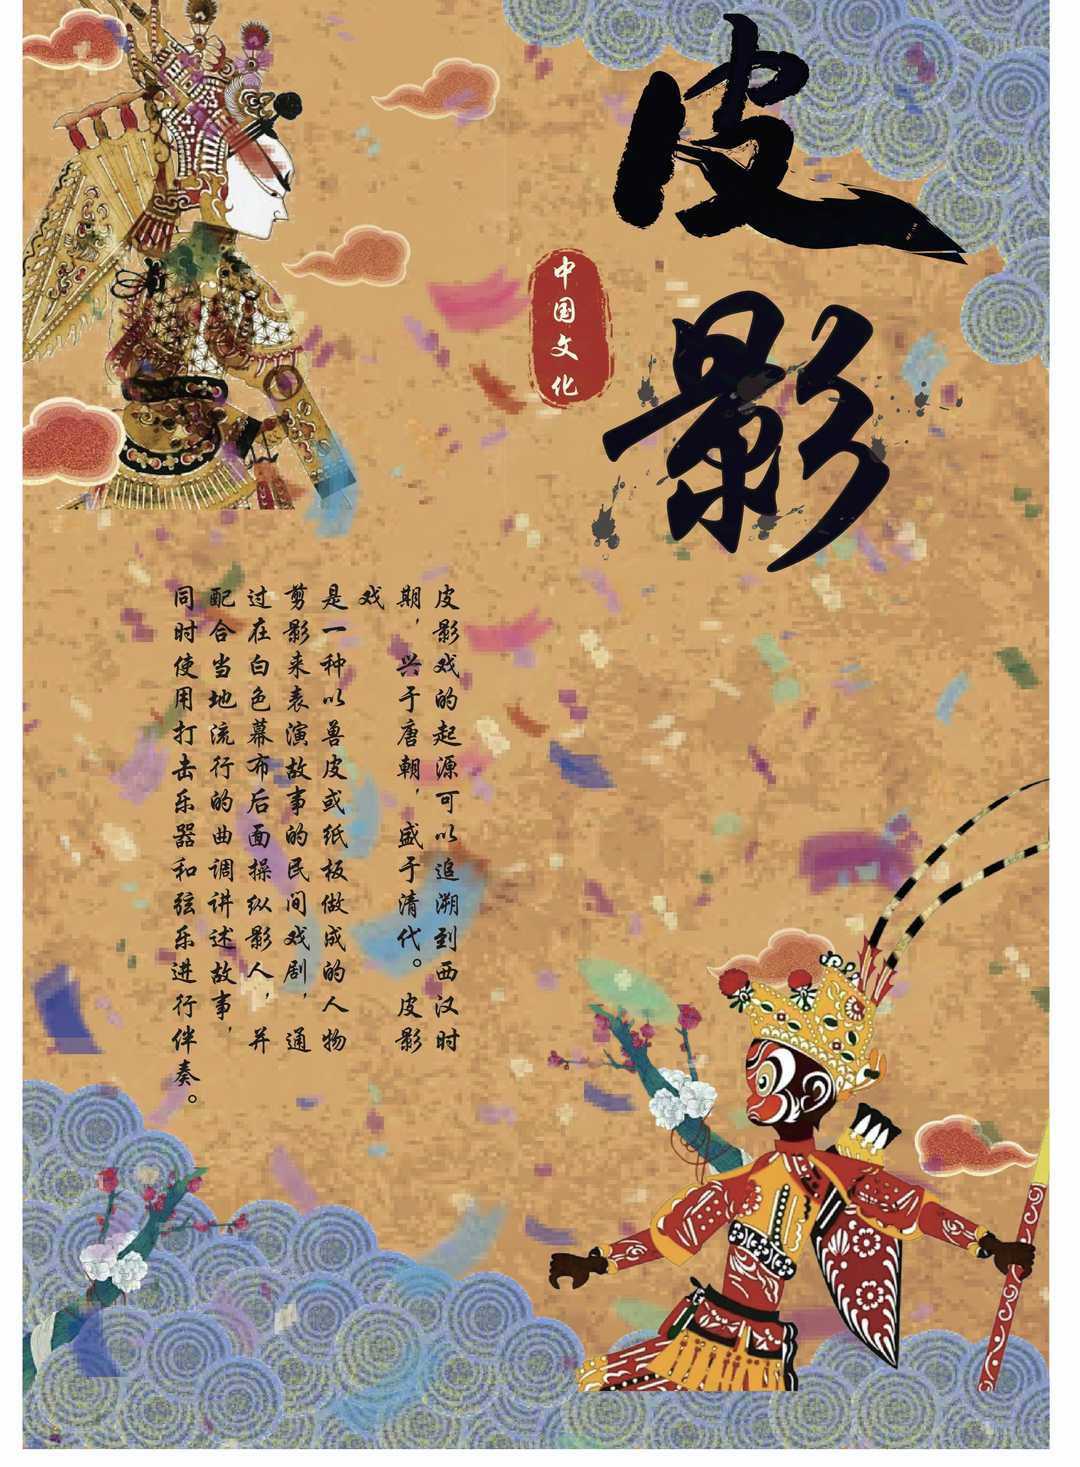 皮
影
中国文化
皮影戏的起源可以追溯到西汉时
期，兴于唐朝，盛于清代。皮影
戏
是一种以兽皮或纸板做成的人物
剪影来表演故事的民间戏剧，通
过在白色幕布后面操纵影人，并
配合当地流行的曲调讲述故事，
同时使用打击乐器和弦乐进行伴奏。